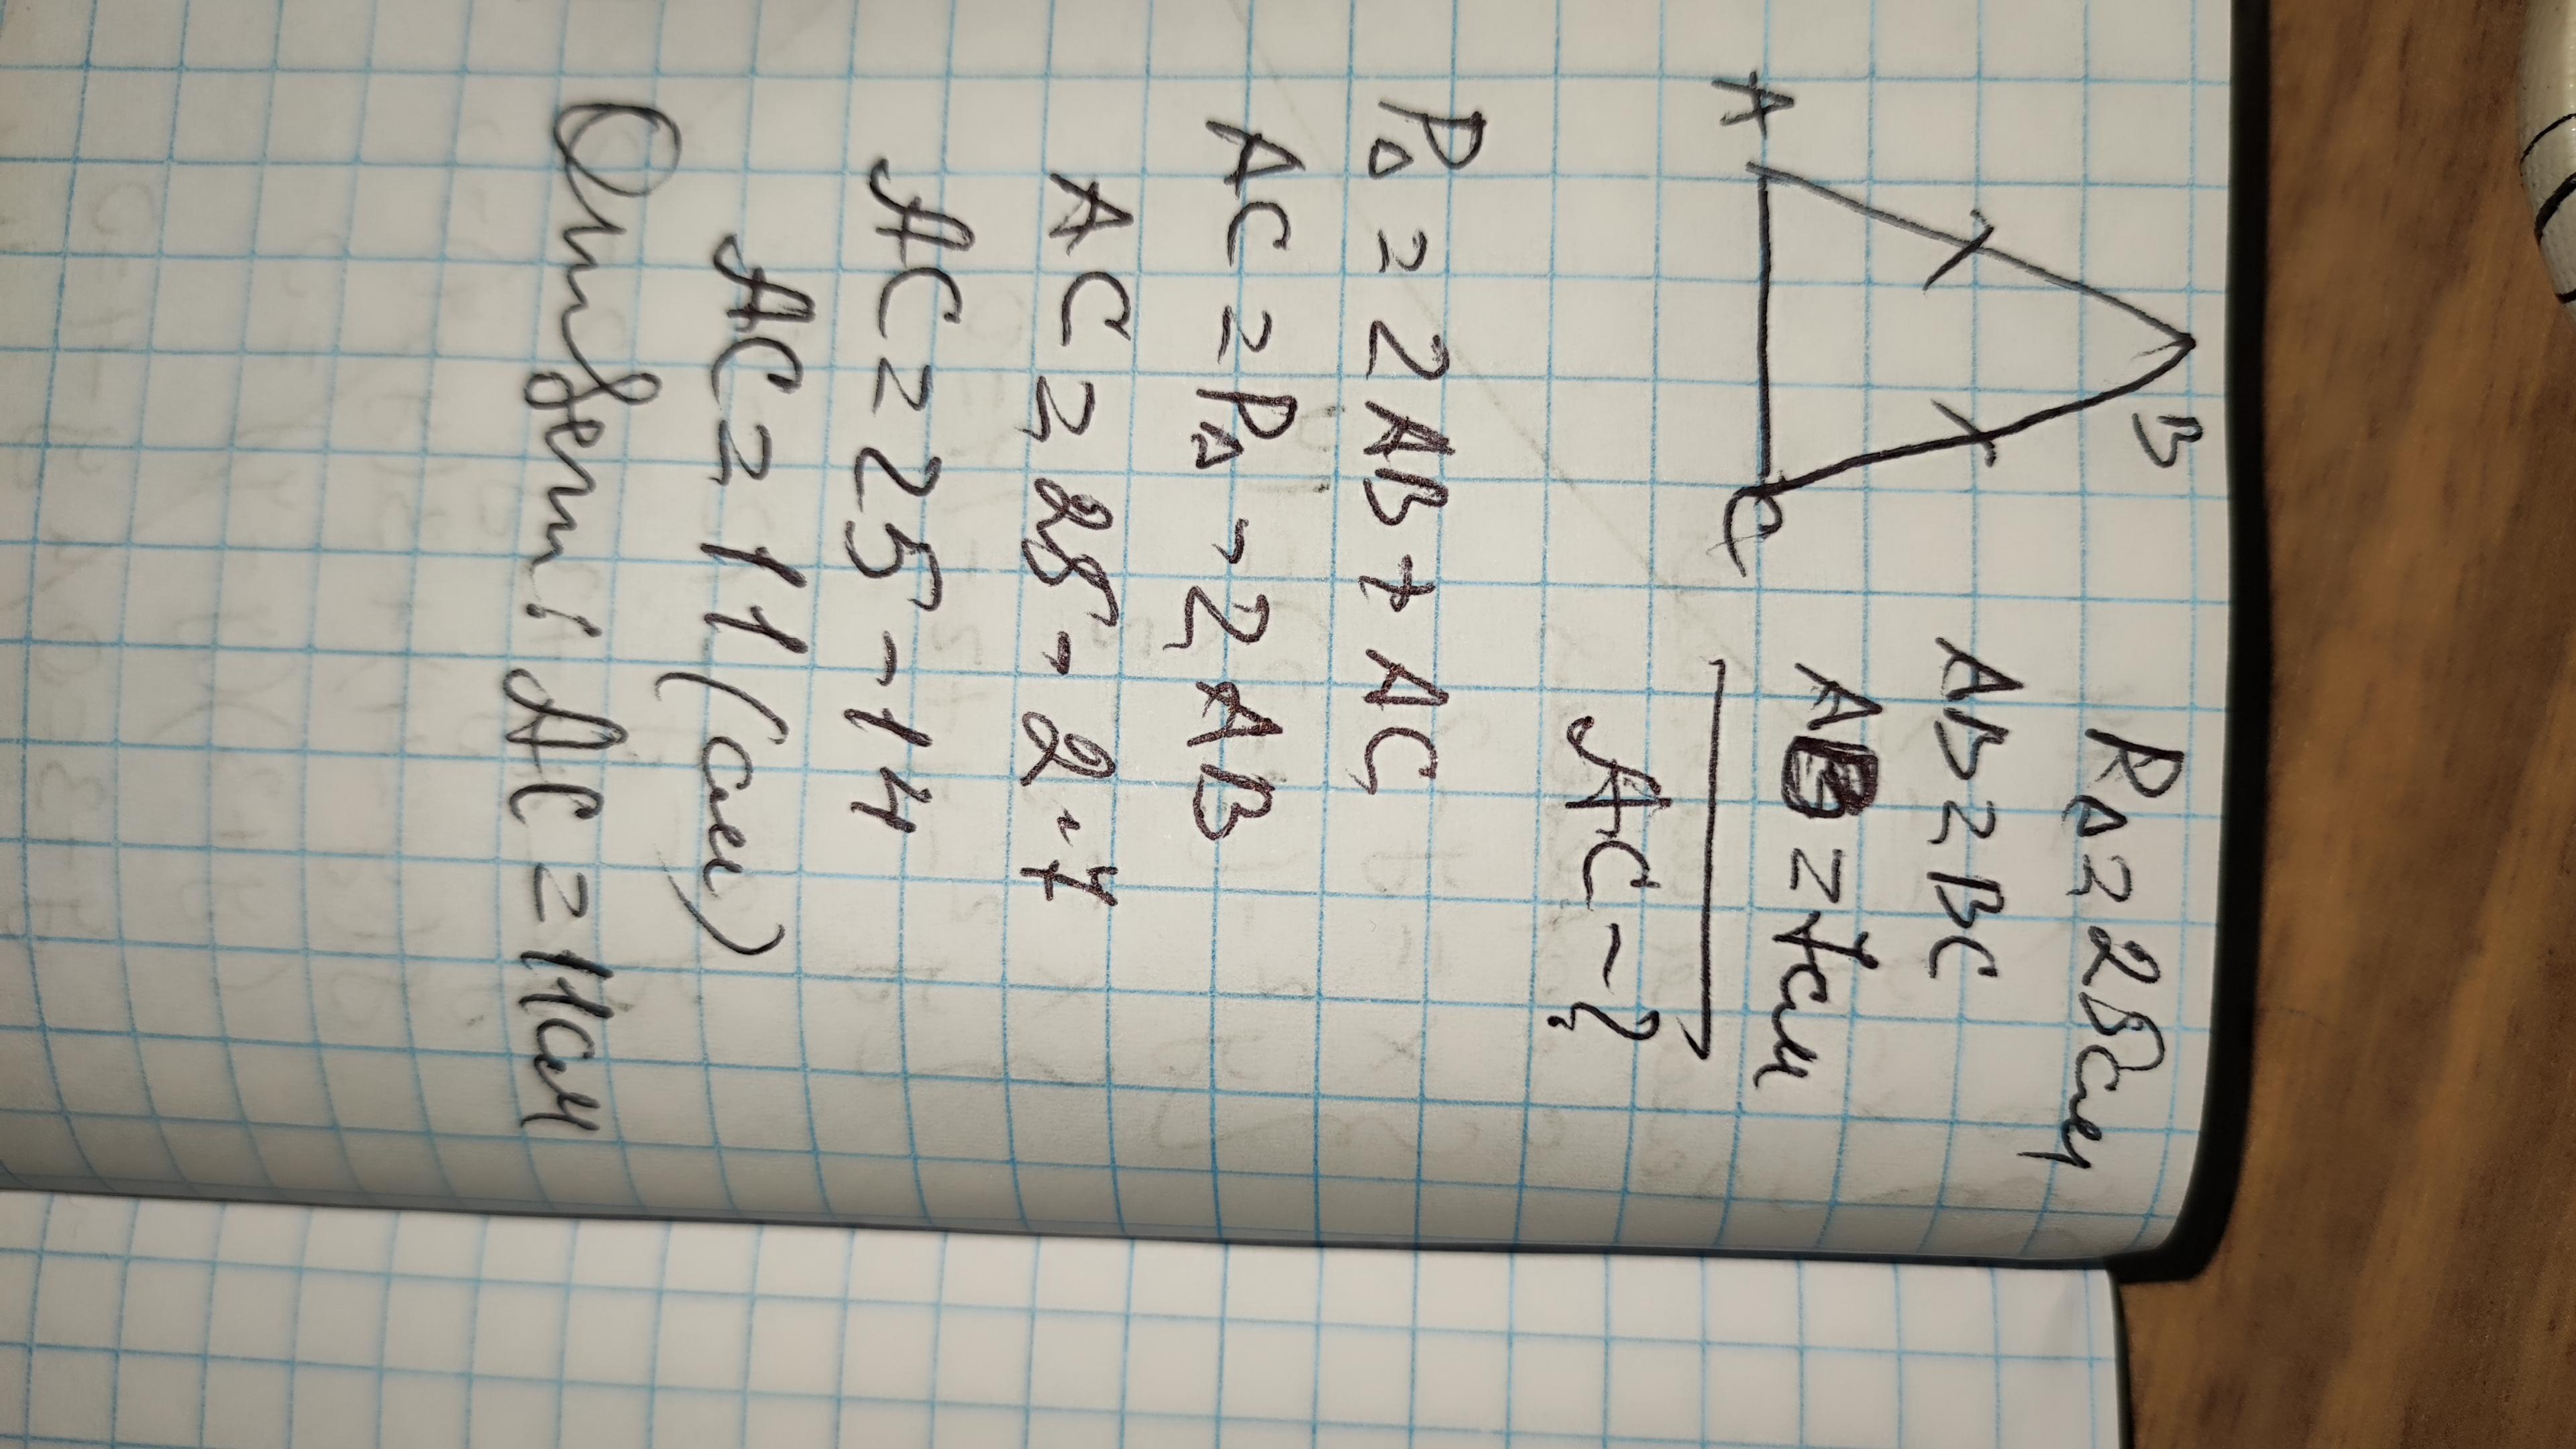 B
A
C
P△ = 25см
AB = BC
AB = 7см
AC - ?
P△ = 2AB + AC
AC = P△ - 2AB
AC = 25 - 2·7
AC = 25 - 14
AC = 11 (см)
Ответ: AC = 11см